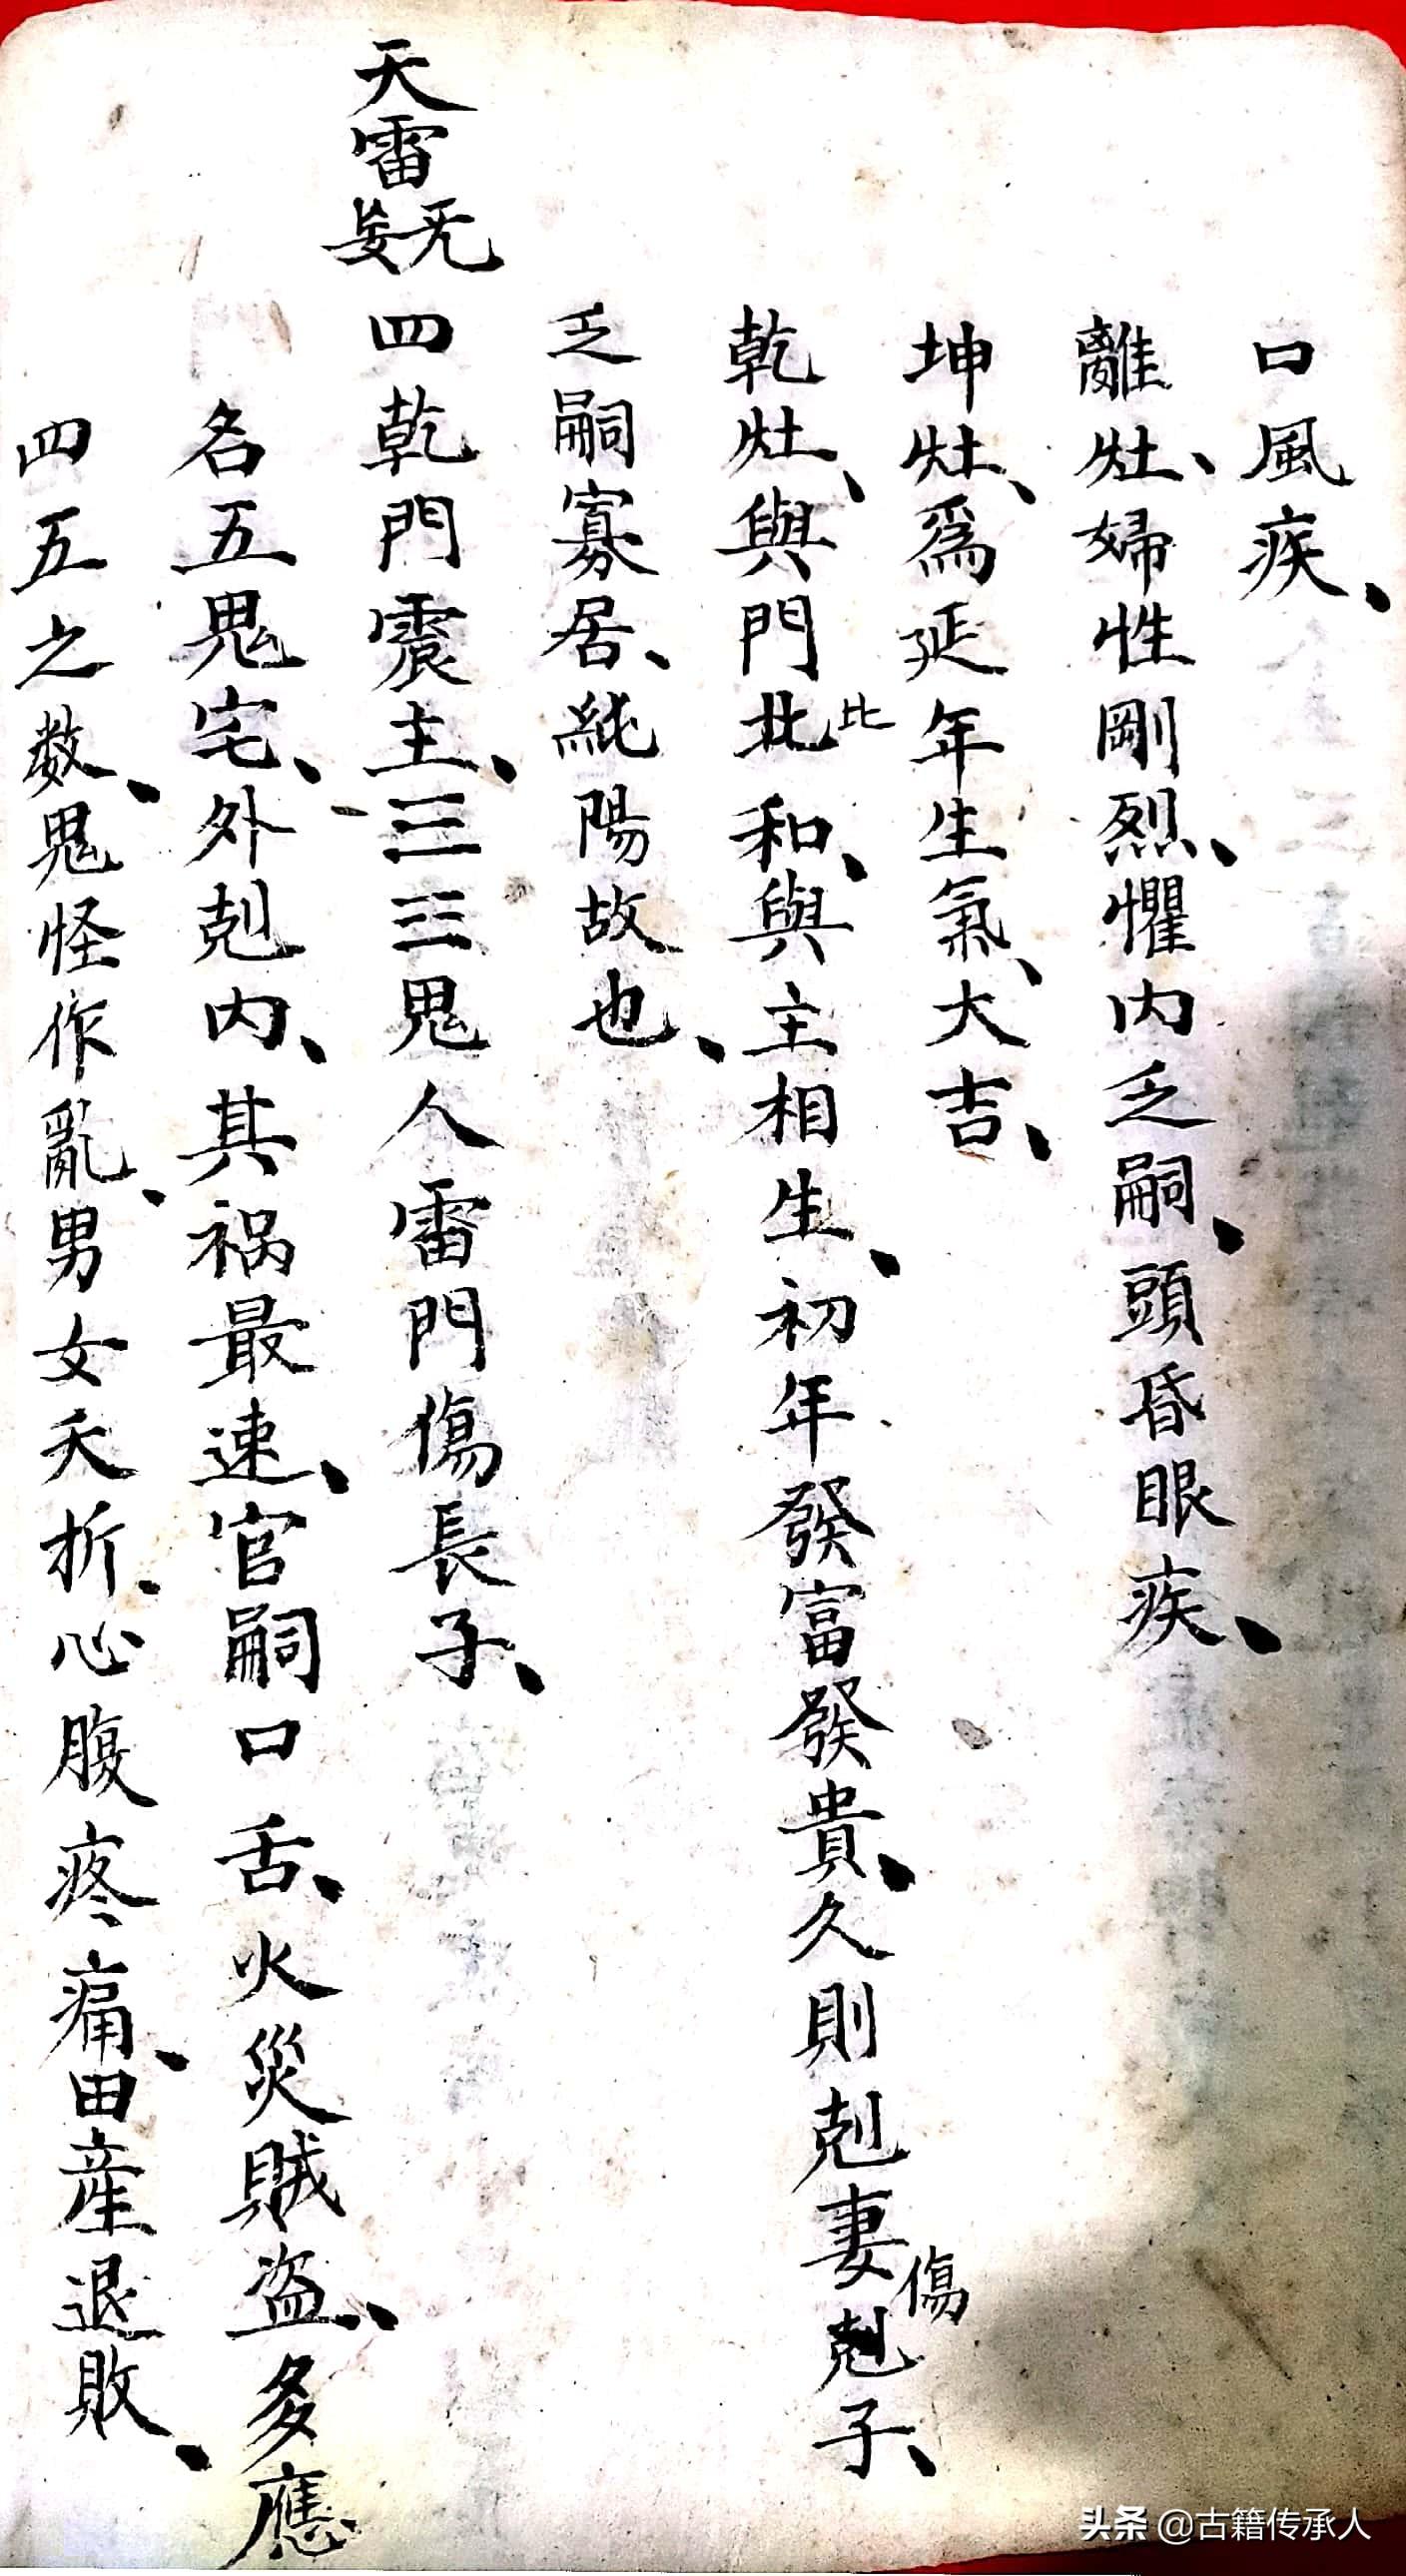 口風疾、
離灶、婦性剛烈、懼内乏嗣、頭昏眼疾、
坤灶、爲延年生氣、大吉、
乾灶、與門北比和、與主相生、初年發富發貴、久則剋妻傷剋子、
乏嗣寡居、純陽故也、
天雷无妄 四乾門震主、☰☳鬼人雷門傷長子、
名五鬼宅、外剋内、其禍最速、官嗣口舌、火災賊盗、多應
四五之数、鬼怪作亂、男女夭折、心腹疼痛、田産退敗、
头条 @古籍传承人